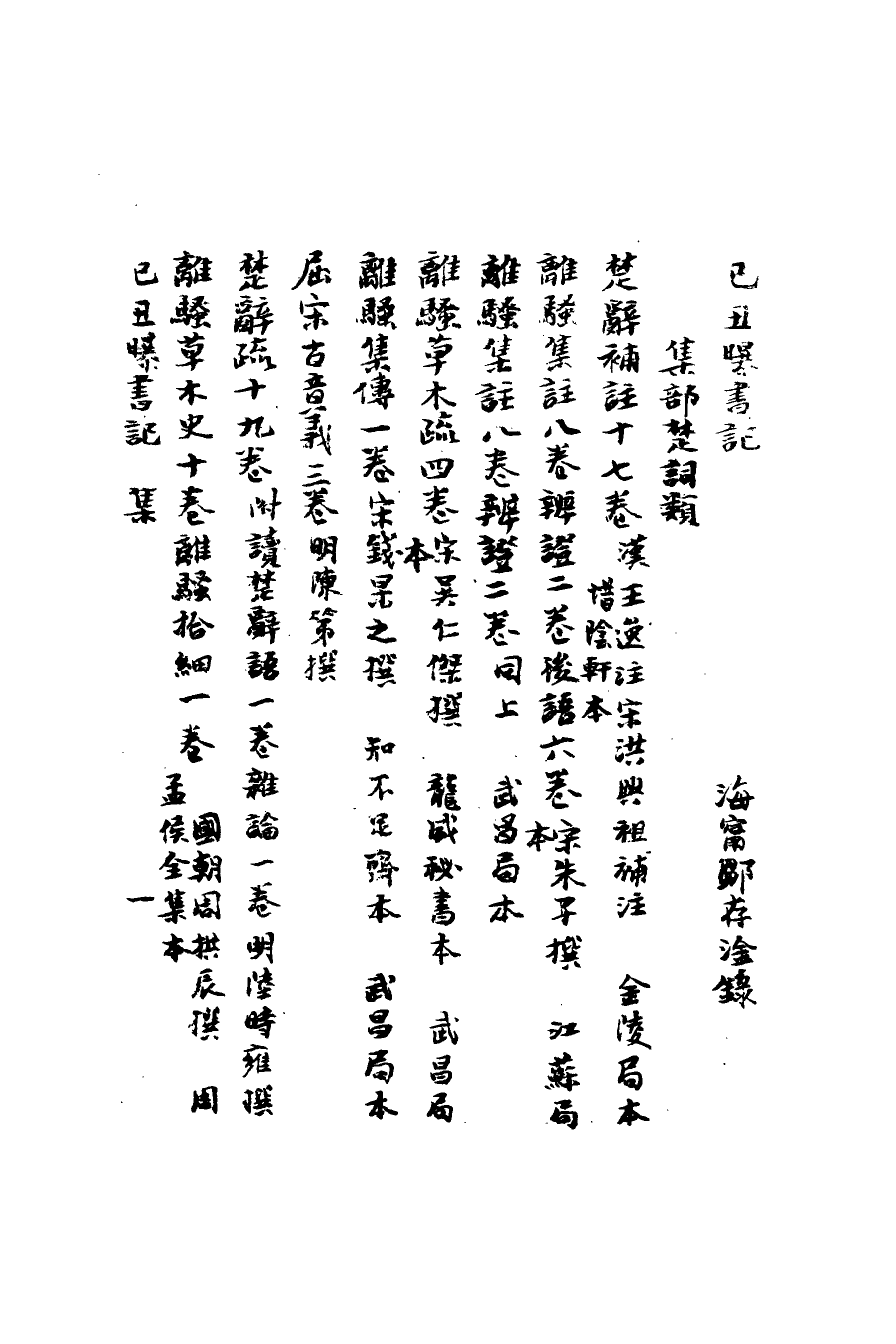 己丑曝書記　海甯鄒存淦錄
集部楚詞類
楚辭補註十七卷漢王逸注宋洪興祖補注　金陵局本　惜陰軒本
離騷集註八卷辨證二卷後語六卷宋朱子撰　江蘇局本
離騷集註八卷辨證二卷同上　武昌局本
離騷草木疏四卷宋吳仁傑撰　龍威秘書本　武昌局本
離騷集傳一卷宋錢杲之撰　知不足齋本　武昌局本
屈宋古音義三卷明陳第撰
楚辭疏十九卷附讀楚辭語一卷雜論一卷明陸時雍撰
離騷草木史十卷離騷拾細一卷　國朝周拱辰撰　周孟侯全集本
己丑曝書記　集　一